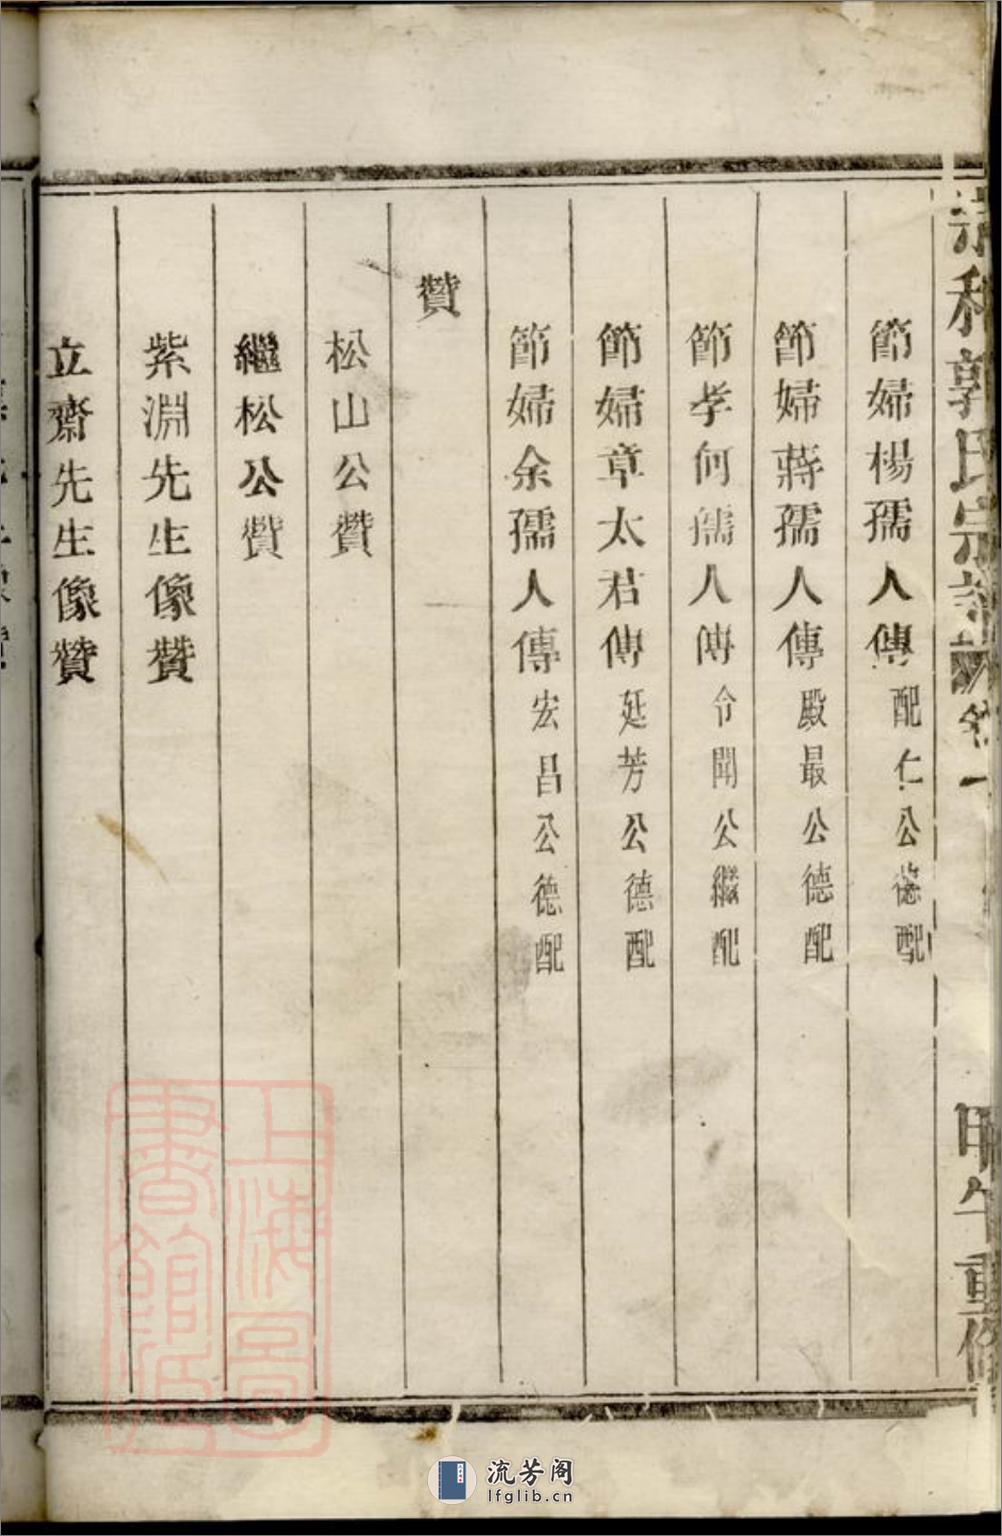 清和郭氏宗譜 卷一 甲午重修
節婦楊孺人傳 配仁公德配
節婦蔣孺人傳 殿最公德配
節孝何孺人傳 令聞公繼配
節婦章太君傳 延芳公德配
節婦余孺人傳 宏昌公德配
贊
松山公贊
繼松公贊
紫淵先生像贊
立齋先生像贊
上海圖書館藏
流芳阁
lfglib.cn